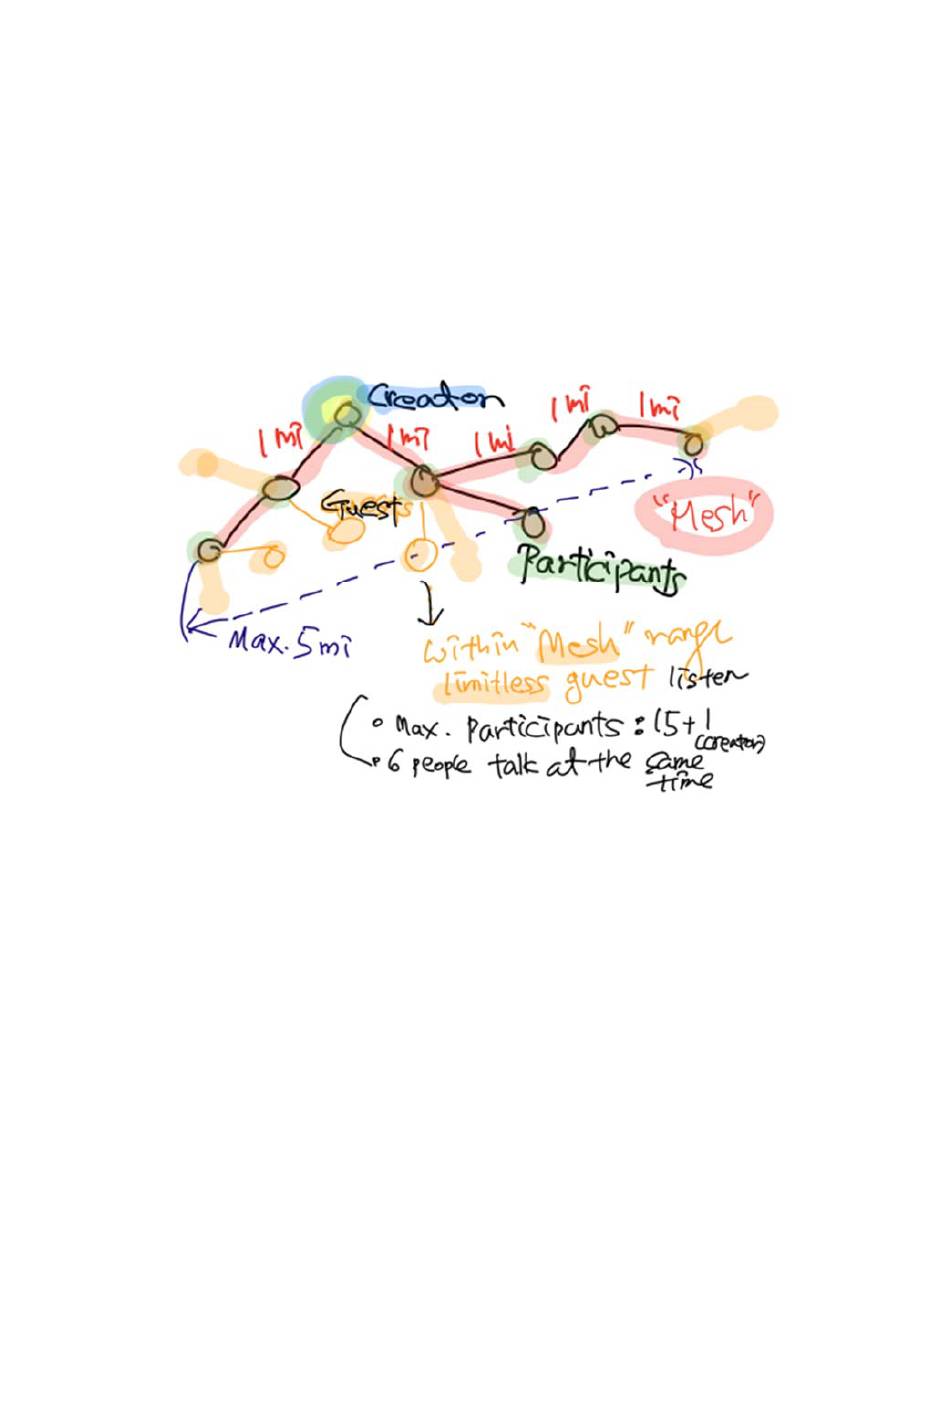 Creator
1mi
1mi
1mi
1mi
1mi
Guests
"Mesh"
Participants
Max. 5mi
within "Mesh" range
limitless guest listen
• Max. Participants : 15+1
(creator)
• 6 people talk at the same
time